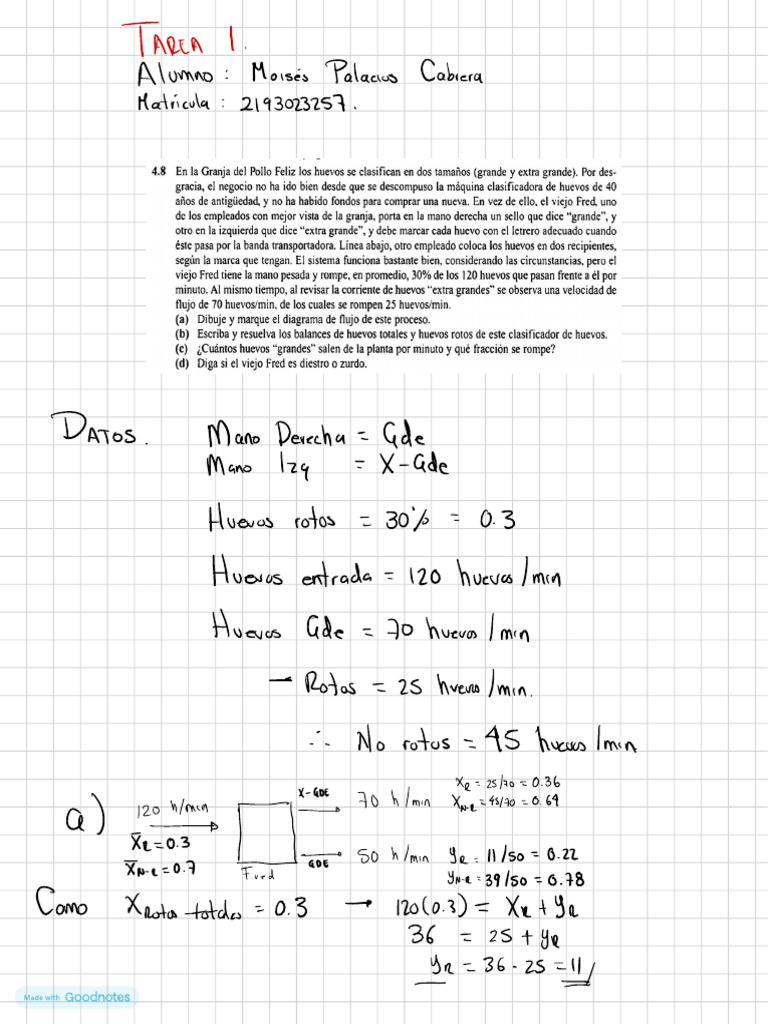 TAREA 1.
Alumno : Moisés Palacios Cabrera
Matrícula : 2193023257.
4.8 En la Granja del Pollo Feliz los huevos se clasifican en dos tamaños (grande y extra grande). Por des-
gracia, el negocio no ha ido bien desde que se descompuso la máquina clasificadora de huevos de 40
años de antigüedad, y no ha habido fondos para comprar una nueva. En vez de ello, el viejo Fred, uno
de los empleados con mejor vista de la granja, porta en la mano derecha un sello que dice “grande”, y
otro en la izquierda que dice “extra grande”, y debe marcar cada huevo con el letrero adecuado cuando
éste pasa por la banda transportadora. Línea abajo, otro empleado coloca los huevos en dos recipientes,
según la marca que tengan. El sistema funciona bastante bien, considerando las circunstancias, pero el
viejo Fred tiene la mano pesada y rompe, en promedio, 30% de los 120 huevos que pasan frente a él por
minuto. Al mismo tiempo, al revisar la corriente de huevos “extra grandes” se observa una velocidad de
flujo de 70 huevos/min, de los cuales se rompen 25 huevos/min.
(a) Dibuje y marque el diagrama de flujo de este proceso.
(b) Escriba y resuelva los balances de huevos totales y huevos rotos de este clasificador de huevos.
(c) ¿Cuántos huevos “grandes” salen de la planta por minuto y qué fracción se rompe?
(d) Diga si el viejo Fred es diestro o zurdo.
DATOS. Mano Derecha = Gde
Mano Izq = X-Gde
Huevos rotos = 30% = 0.3
Huevos entrada = 120 huevos/min
Huevos Gde = 70 huevos/min
→ Rotos = 25 huevos/min.
∴ No rotos = 45 huevos/min
a) 120 h/min
X̄R = 0.3
X̄N-R = 0.7
X-GDE
70 h/min
XR = 25/70 = 0.36
XN-R = 45/70 = 0.64
GDE
50 h/min
YR = 11/50 = 0.22
YN-R = 39/50 = 0.78
Furd
Como XRotos totales = 0.3 → 120(0.3) = XR + YR
36 = 25 + YR
YR = 36 - 25 = 11/
Made with Goodnotes